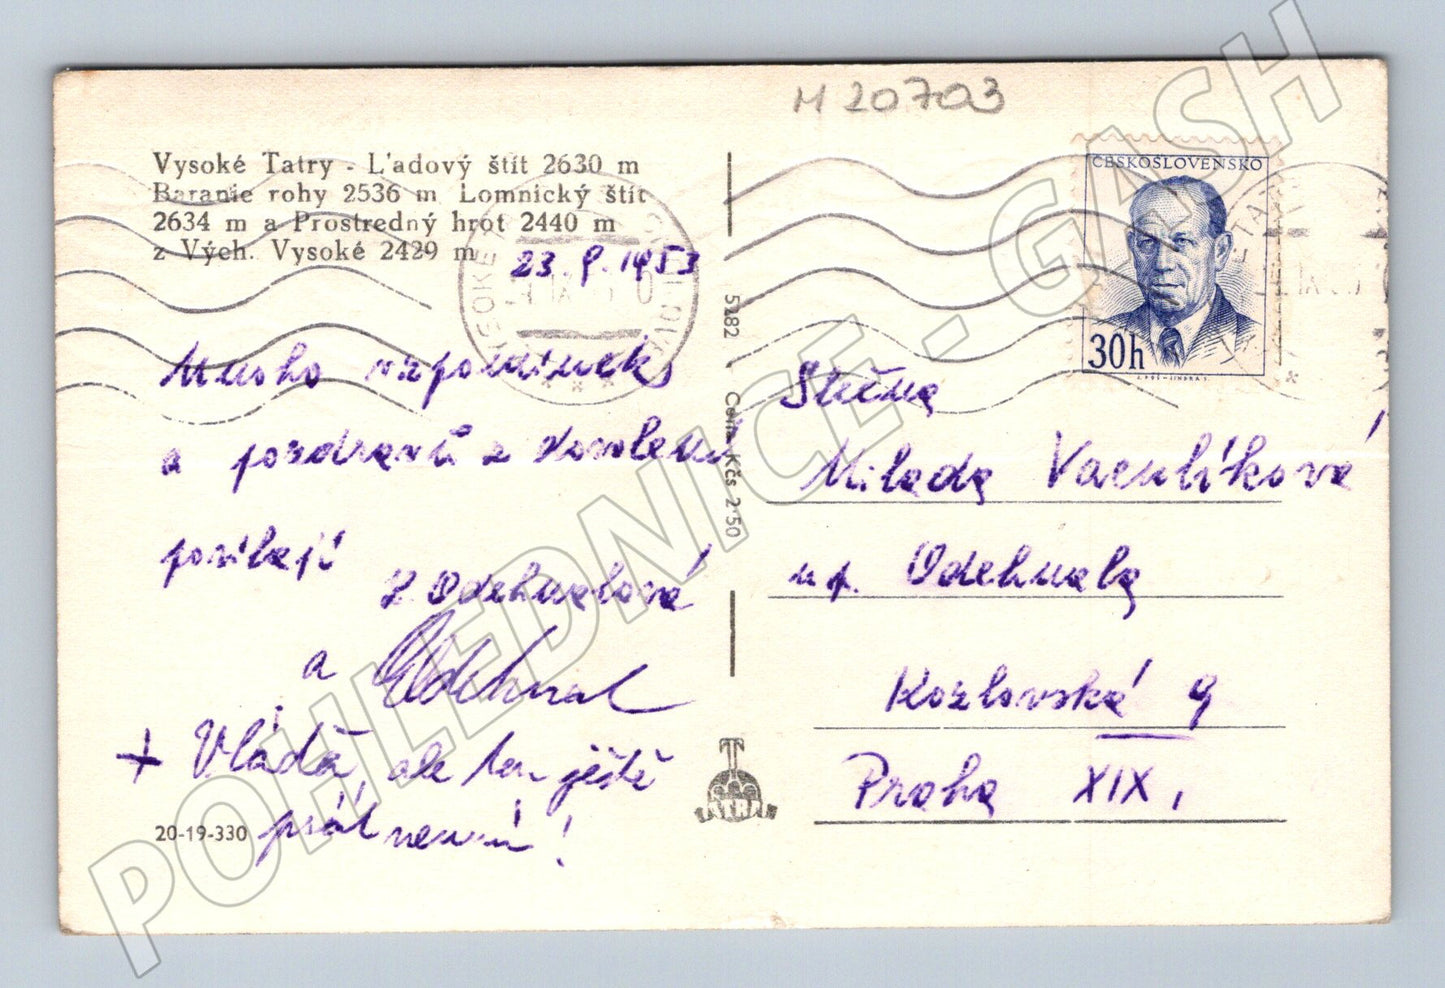 M 20703
Vysoké Tatry - L'adový štít 2630 m
Baranie rohy 2536 m Lomnický štít
2634 m a Prostredný hrot 2440 m
z Vých. Vysoké 2429 m
23. 9. 1953
Mnoho vzpomínek
a pozdravů z dovolené
posílají
Z. Odehnalová
a Odehnal
+ Vláďa, ale ten ještě
psát neumí!
20-19-330
5182 Cena Kčs 2·50
TATRAN
ČESKOSLOVENSKO
30h
VYSOKÉ TATRY
Slečna
Milada Vaculíková
u p. Odehnala
Kozlovská 9
Praha XIX,
POHLEDNICE - GASH